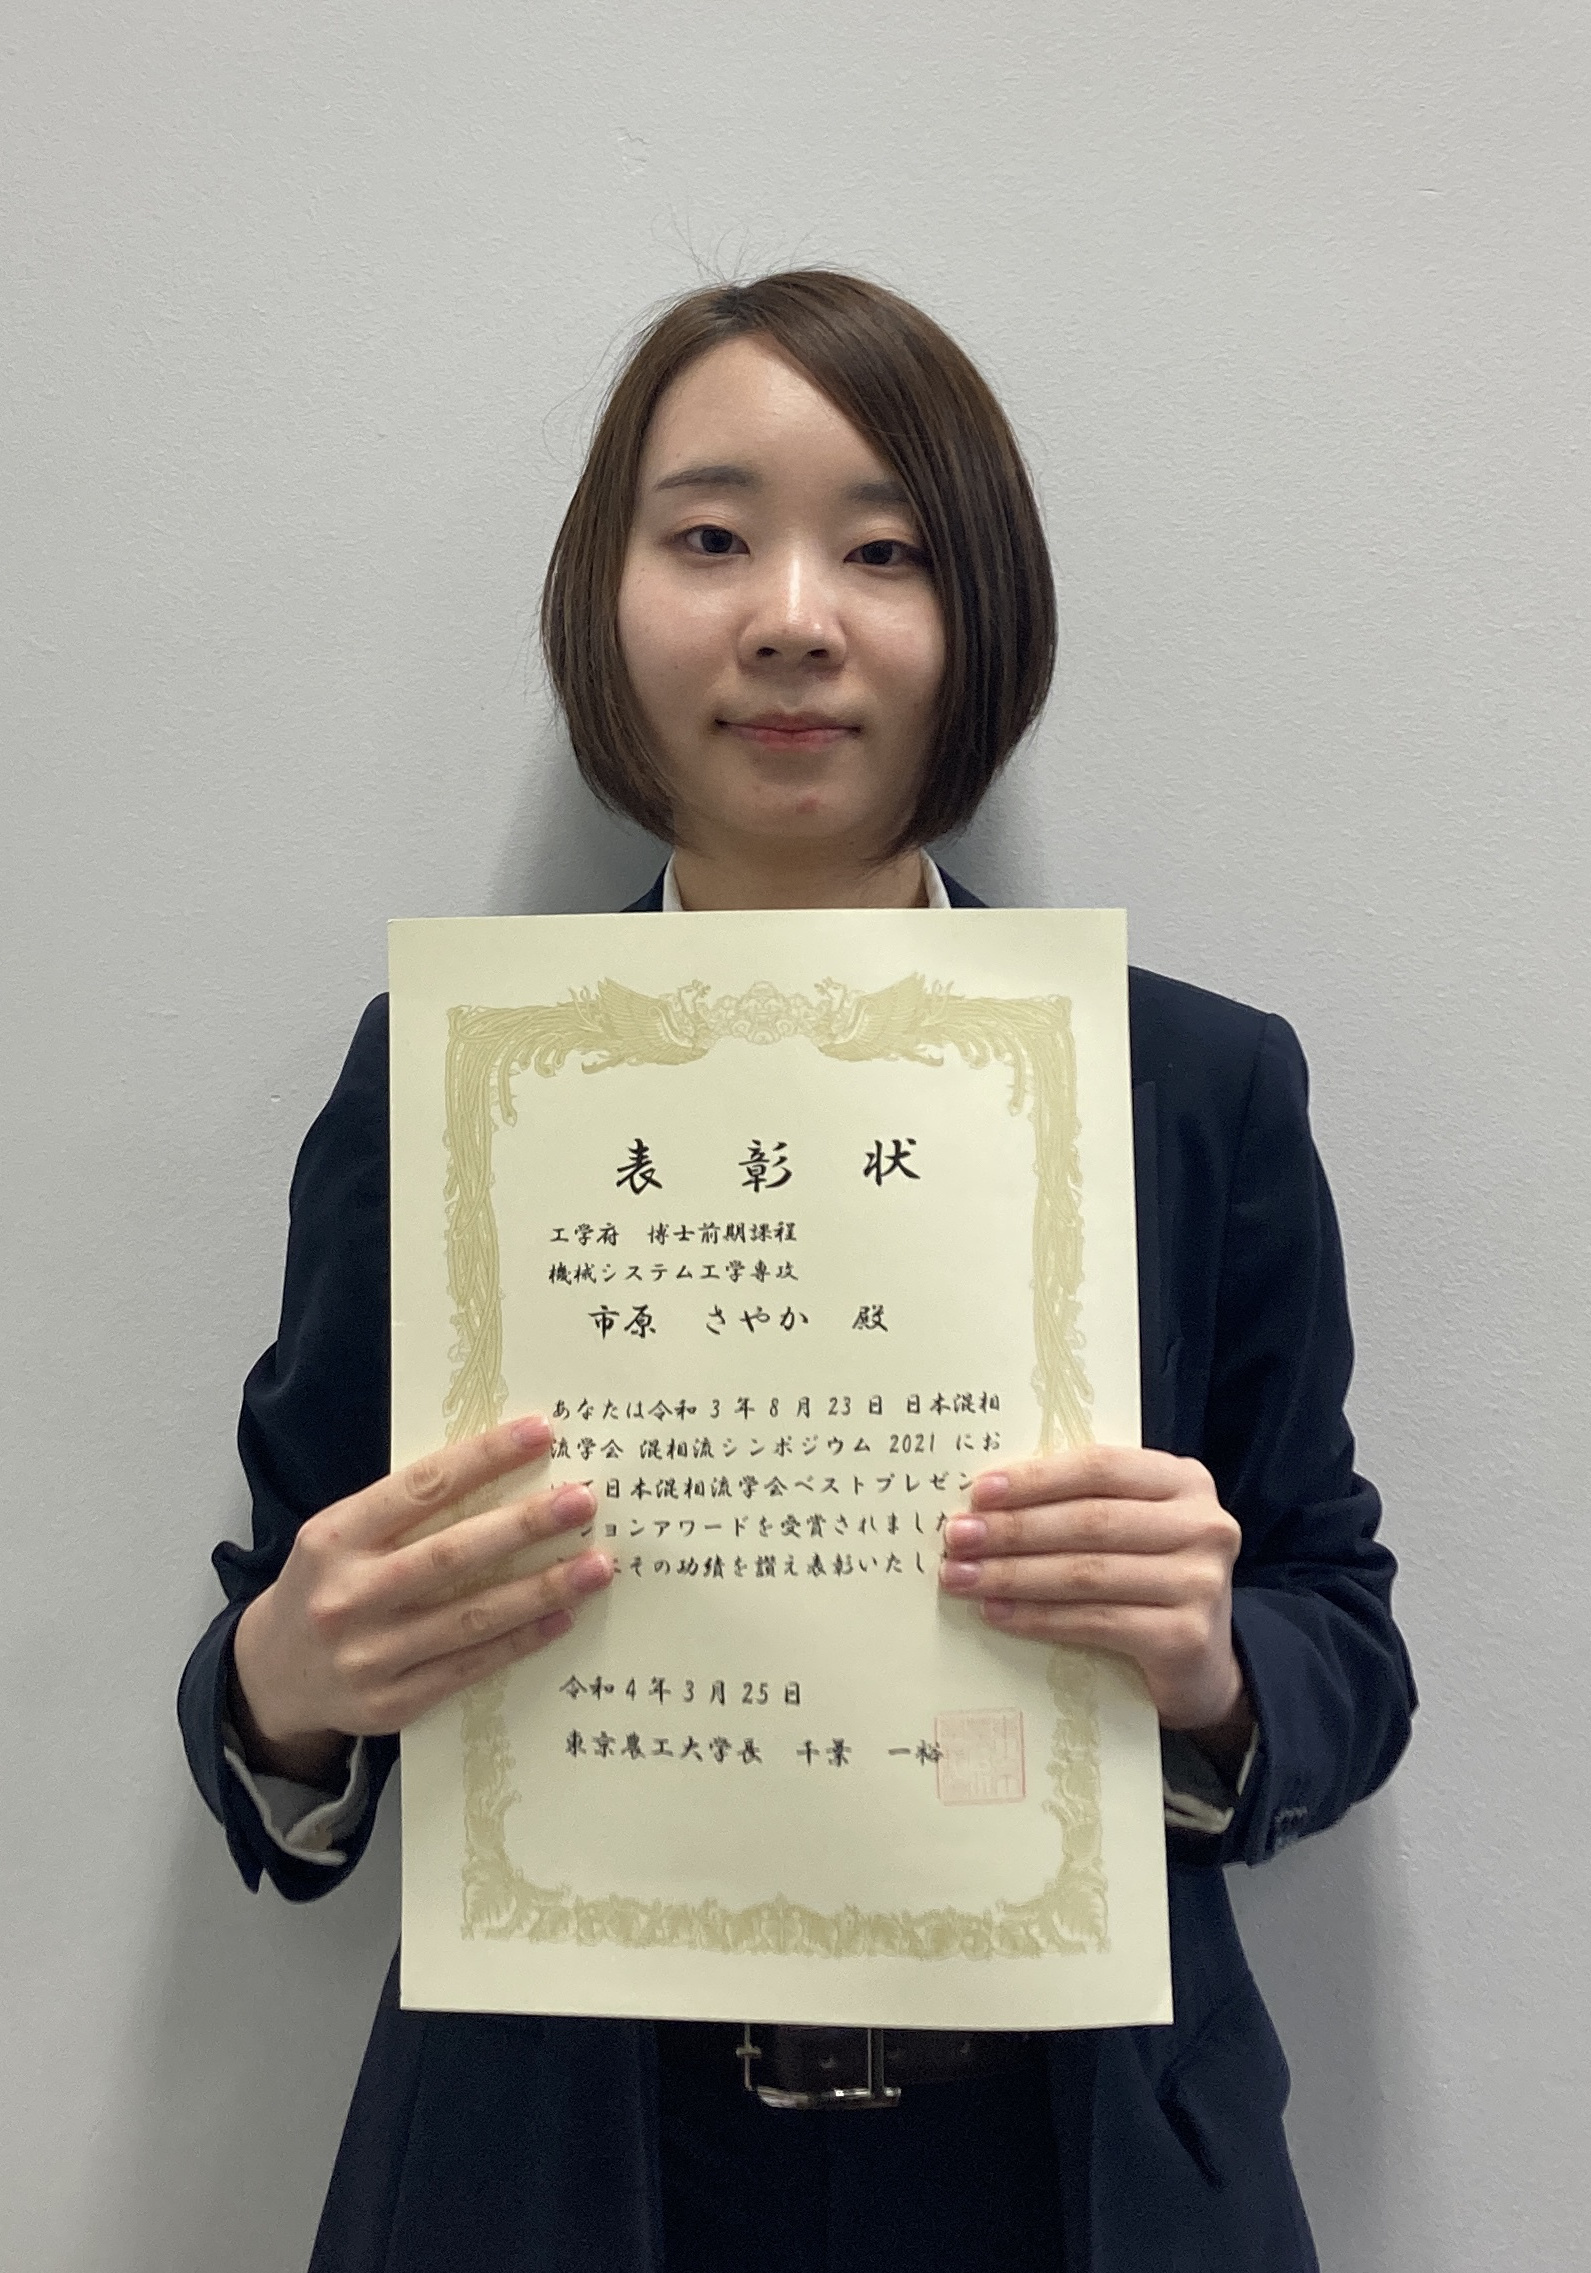 表彰状
工学府 博士前期課程
機械システム工学専攻
市原 さやか 殿
あなたは令和3年8月23日 日本混相
流学会 混相流シンポジウム 2021 にお
て日本混相流学会ベストプレゼン
ションアワードを受賞されまし
その功績を讃え表彰いたし
令和4年3月25日
東京農工大学長 千葉 一裕